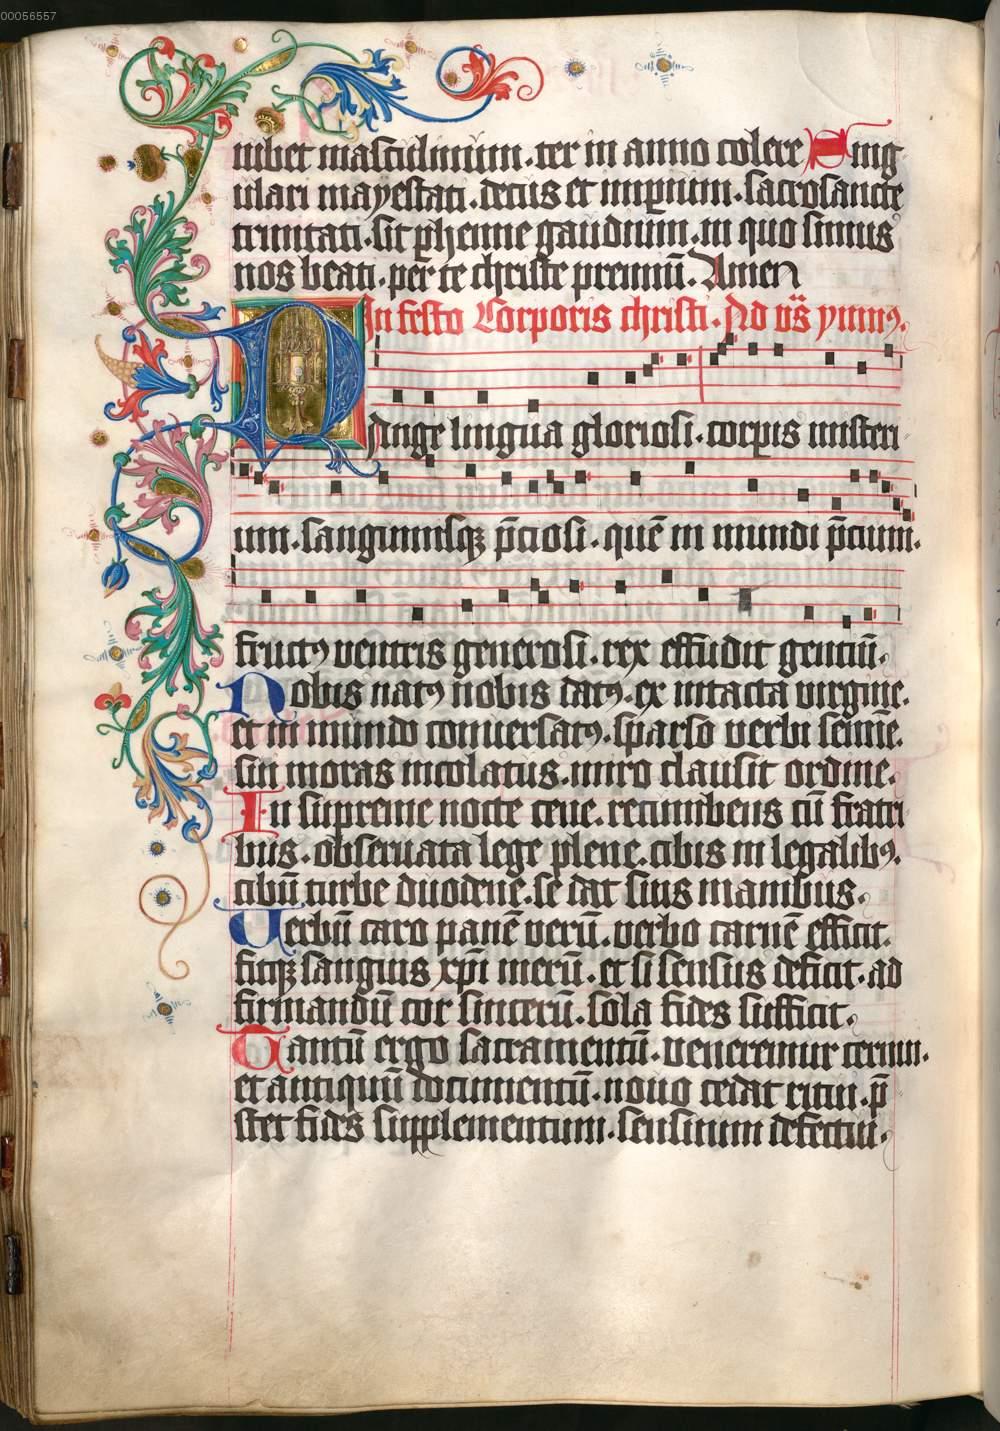 00056557
iubet masculinum. ter in anno colere Sing
ulari mayestati. decus et imperium. sacrosancte
trinitati. sit perhenne gaudium. in quo simus
nos beati. per te christe premiū. Amen
In festo Corporis christi. Ad vs̄ ymnꝰ.
Pange lingua gloriosi. corpis misteri
um. sanguinisqꝫ p̄ciosi. quē in mundi p̄cium.
fructꝰ ventris generosi. rex effudit gentiū.
Nobis natꝰ nobis datꝰ. ex intacta virgine.
et in mundo conuersatꝰ. sparso verbi semīe.
sui moras incolatus. miro clausit ordine.
In supreme nocte cene. recumbens cū fratri
bus. obseruata lege plene. cibis in legalibꝰ.
cibū turbe duodene. se dat suis manibus.
Verbū caro panē verū. verbo carnē efficit.
fitqꝫ sanguis xp̄i merū. et si sensus deficit. ad
firmandū cor sincerū. sola fides sufficit.
Tantū ergo sacramentū. veneremur cernui.
et antiquū documentū. nouo cedat ritui. p̄
stet fides supplementum. sensuum defectui.